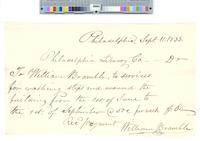 Philadelphia, Sept. 11. 1833.
Philadelphia Library Co. — Dr
To William Bramble, to services
for washing steps and around the
building from the 1st of June to
the 1st of September @ 50c per week
Rec'd payment
William Bramble